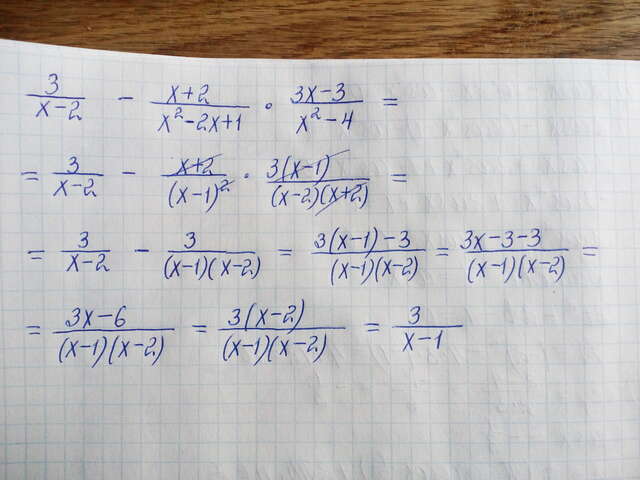 3/(x-2) - (x+2)/(x²-2x+1) · (3x-3)/(x²-4) =
= 3/(x-2) - (x+2)/(x-1)² · 3(x-1)/((x-2)(x+2)) =
= 3/(x-2) - 3/((x-1)(x-2)) = (3(x-1)-3)/((x-1)(x-2)) = (3x-3-3)/((x-1)(x-2)) =
= (3x-6)/((x-1)(x-2)) = 3(x-2)/((x-1)(x-2)) = 3/(x-1)